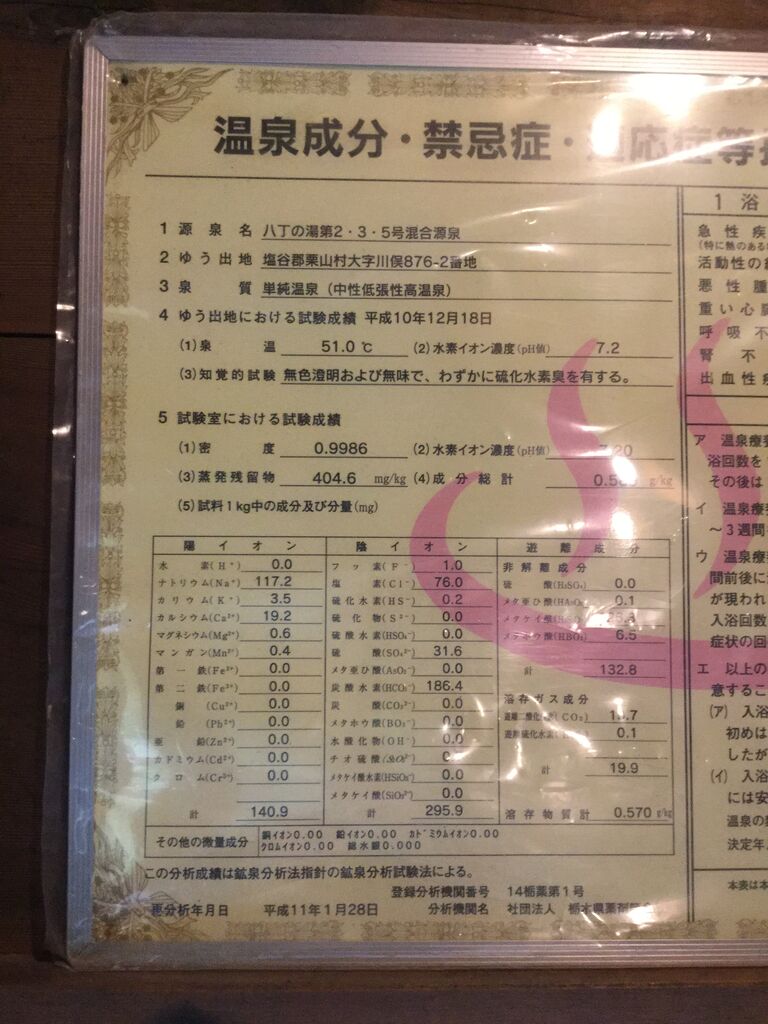 温泉成分・禁忌症・適応症等
1 源泉名 八丁の湯第2・3・5号混合源泉
2 ゆう出地 塩谷郡栗山村大字川俣876-2番地
3 泉質 単純温泉（中性低張性高温泉）
4 ゆう出地における試験成績 平成10年12月18日
(1)泉温 51.0 ℃ (2)水素イオン濃度(pH値) 7.2
(3)知覚的試験 無色澄明および無味で、わずかに硫化水素臭を有する。
5 試験室における試験成績
(1)密度 0.9986 (2)水素イオン濃度(pH値) 7.20
(3)蒸発残留物 404.6 mg/kg (4)成分総計 g/kg
(5)試料1kg中の成分及び分量(mg)
陽イオン
水素(H⁺) 0.0
ナトリウム(Na⁺) 117.2
カリウム(K⁺) 3.5
カルシウム(Ca²⁺) 19.2
マグネシウム(Mg²⁺) 0.6
マンガン(Mn²⁺) 0.4
第一鉄(Fe²⁺) 0.0
第二鉄(Fe³⁺) 0.0
銅(Cu²⁺) 0.0
鉛(Pb²⁺) 0.0
亜鉛(Zn²⁺) 0.0
カドミウム(Cd²⁺) 0.0
クロム(Cr³⁺) 0.0
計 140.9
陰イオン
フッ素(F⁻) 1.0
塩素(Cl⁻) 76.0
硫化水素(HS⁻) 0.2
硫化物(S²⁻) 0.0
硫酸水素(HSO₄⁻) 0.0
硫酸(SO₄²⁻) 31.6
メタ亜ひ酸(AsO₂⁻) 0.0
炭酸水素(HCO₃⁻) 186.4
炭酸(CO₃²⁻) 0.0
メタホウ酸(BO₂⁻) 0.0
水酸化物(OH⁻) 0.0
チオ硫酸 0.0
メタケイ酸水素(HSiO₃⁻) 0.0
メタケイ酸(SiO₃²⁻) 0.0
計 295.9
遊離成分
非解離成分
硫酸(H₂SO₄) 0.0
メタ亜ひ酸(HAsO₂) 0.1
メタケイ酸
メタホウ酸(HBO₂) 6.5
計 132.8
溶存ガス成分
遊離二酸化炭素(CO₂)
遊離硫化水素 0.1
計 19.9
溶存物質計 0.570 g/kg
その他の微量成分 銅イオン0.00 鉛イオン0.00 カドミウムイオン0.00
クロムイオン0.00 総水銀0.000
この分析成績は鉱泉分析法指針の鉱泉分析試験法による。
登録分析機関番号 14栃薬第1号
更分析年月日 平成11年1月28日 分析機関名 社団法人 栃木県薬剤師会
1 浴
急性疾
(特に熱のある
活動性の
悪性腫
重い心臓
呼吸不
腎不
出血性疾
ア 温泉療
浴回数を
その後は
イ 温泉療
～3週間
ウ 温泉療
間前後に
が現われ
入浴回数
症状の回
エ 以上の
意するこ
(ア) 入浴
初めは
したが
(イ) 入浴
には安
温泉の
決定年
本表は本